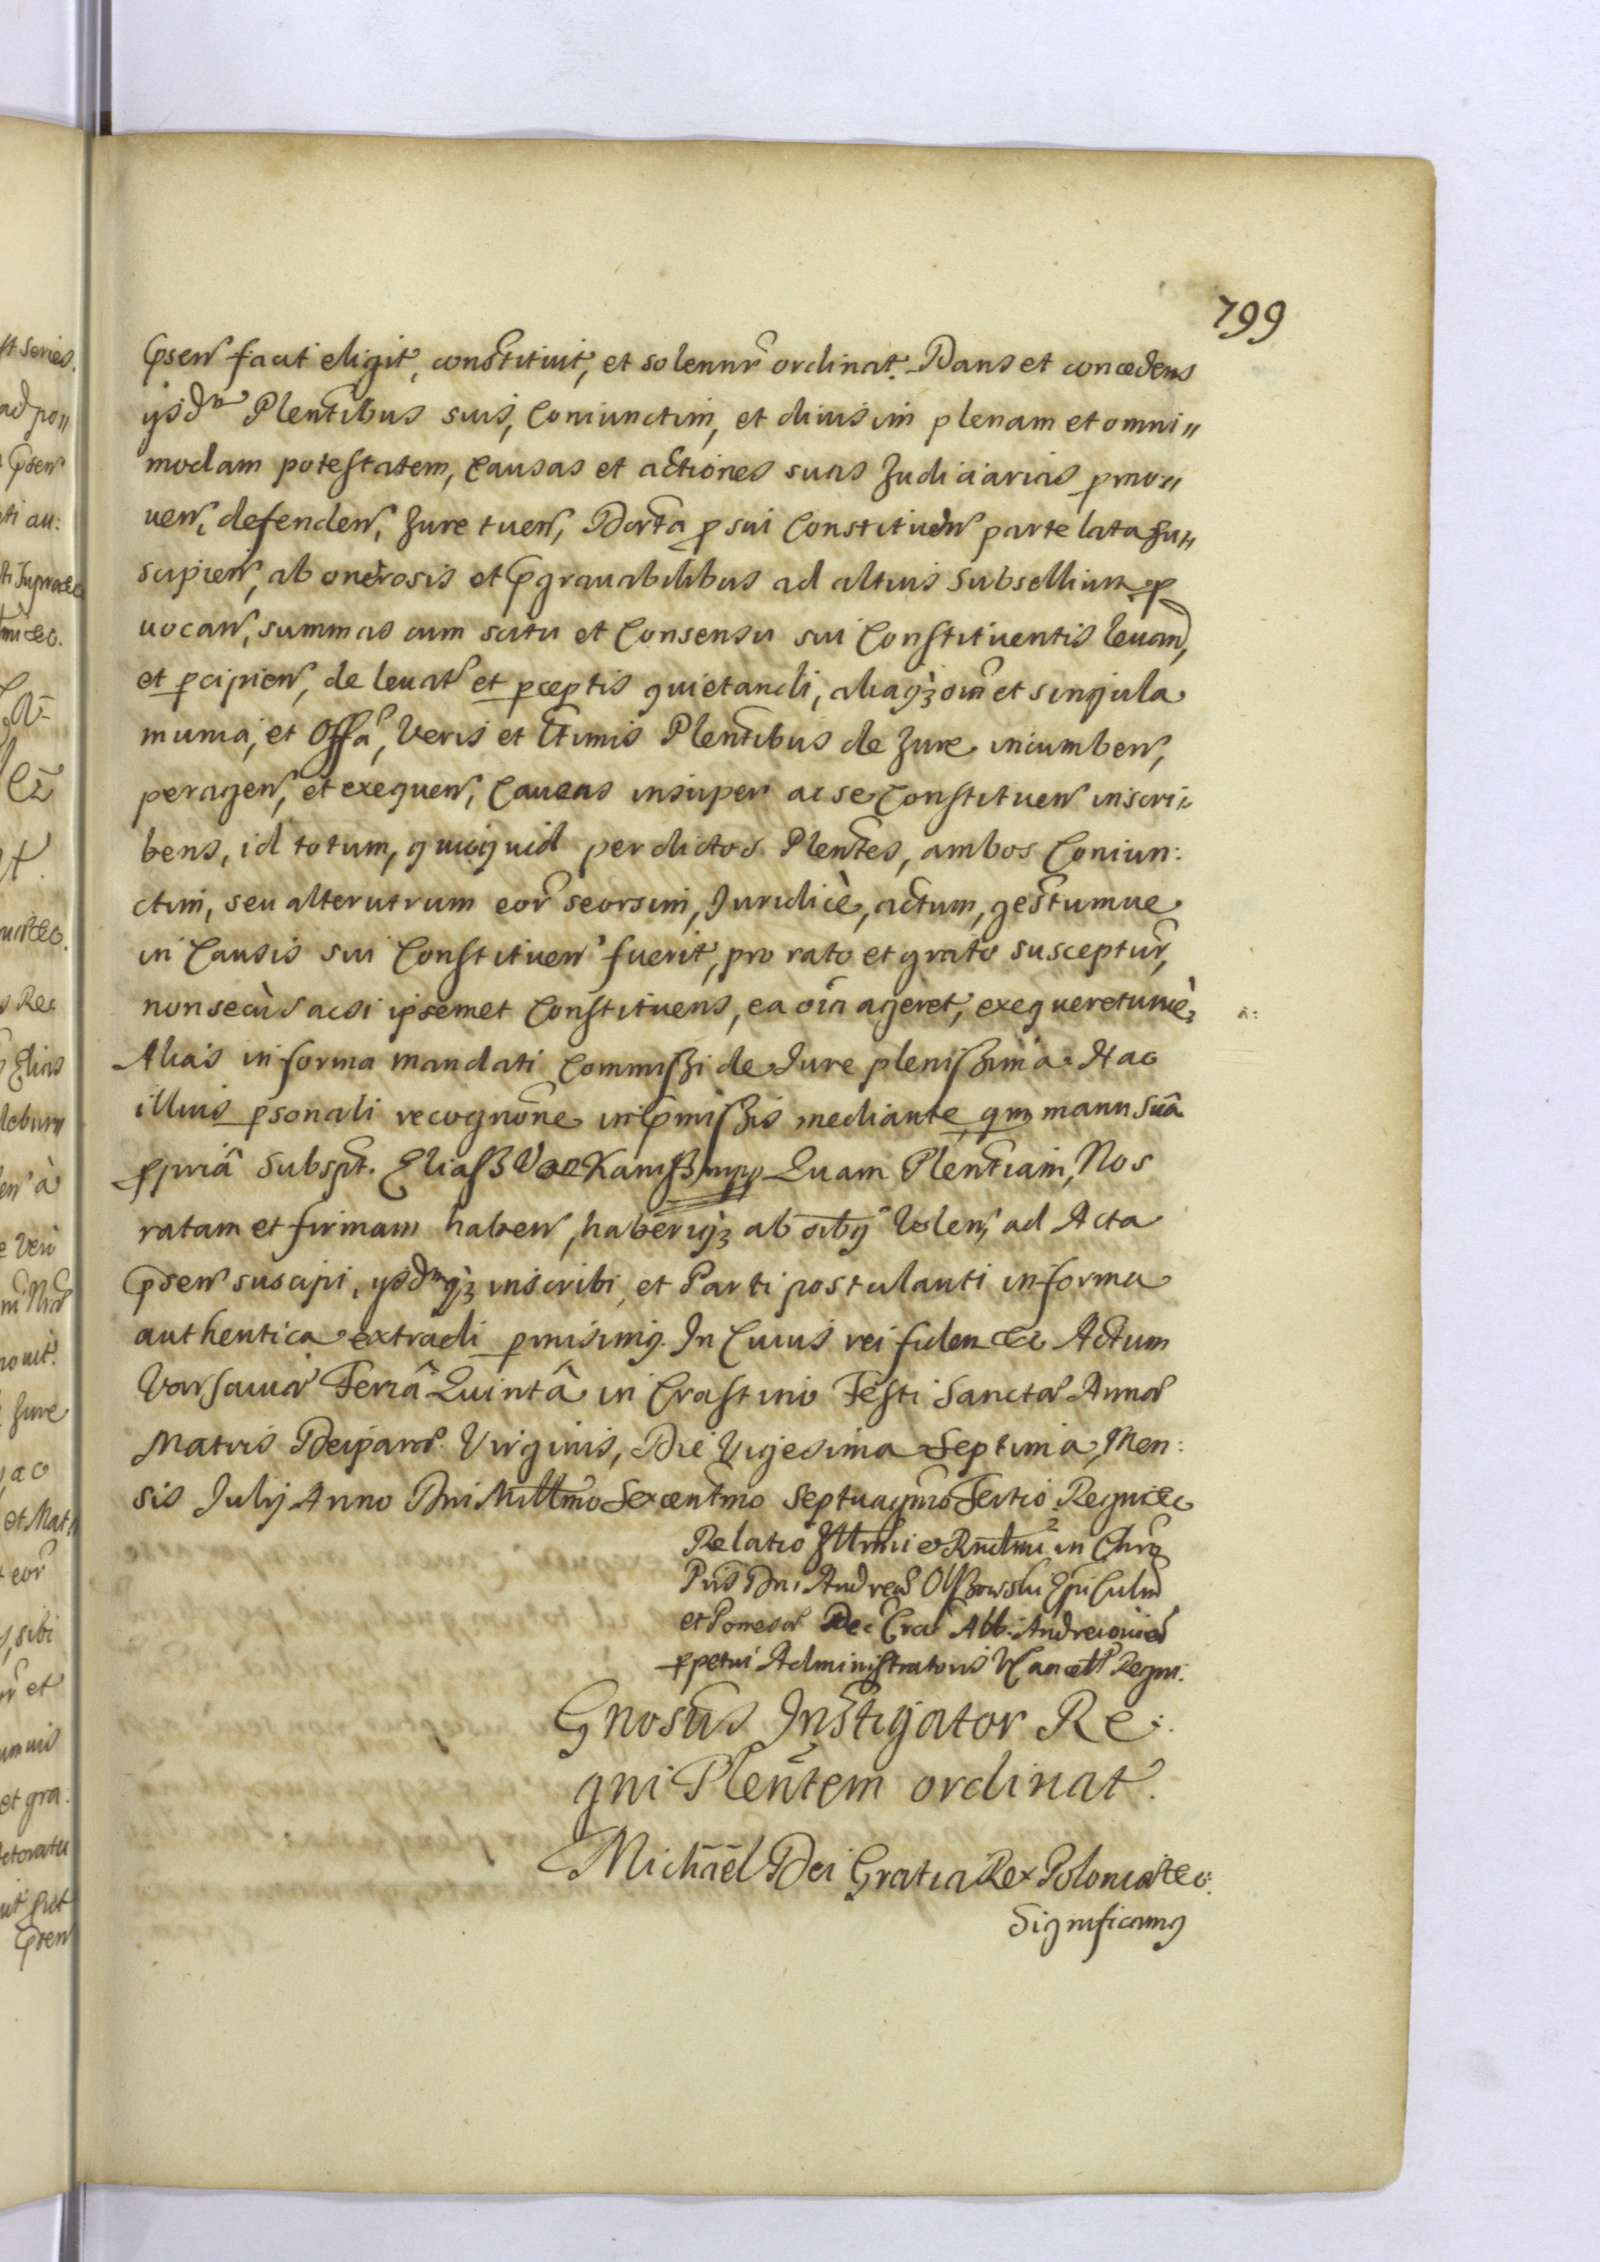 799
Psen facit eligit, constituit, et solennr ordinat. Dans et concedens
ysdm Plentibus suis, Coniunctim, et diuisim plenam et omni〃
modam potestatem, Causas et actiones suas Judiciarias pmo〃
uen, defenden, Jure tuen, Dcrta p sui Constituen parte lata su〃
scipien, ab onerosis et pgrauabilibus ad altius subsellium p
uocan, summas cum scitu et Consensu sui Constituentis leuand,
et pcipien, de leuat et pceptis quietandi, aliaqz oia et singula
munia, et Offa, Veris et Ltimis Plentibus de Jure incumben,
peragen, et exequen, Cauens insuper ac se Constituen inscri〃
bens, id totum, quicquid per dictos Plentes, ambos Coniun:
ctim, seu alterutrum eor seorsim, Juridicè, actum, gestumue
in Causis sui Constituen fuerit, pro rato et grato susceptur,
non secùs acsi ipsemet Constituens, ea oia ageret, exequereturuè,
Alias in forma mandati Commissi de Jure plenissima. Hac
illius psonali recognone in pmissis mediante, qm manu suâ
ppriâ subspt. Eliass Van Kamiss mpp Quam Plentiam, Nos
ratam et firmam haben, haberiqz ab oibq Volen, ad Acta
psen suscipi, ysdmqz inscribi, et Parti postulanti in forma
authentica extradi pmisimq. In Cuius rei fidem &c Actum
Varsauiæ Feriâ Quintâ in Crastino Festi Sanctæ Annæ
Matris Deiparæ Virginis, Die Vigesima Septima, Men:
sis Julij Anno Dni Millmo Sexcentmo Septuagmo Tertio Regni &c
Relatio Illmi & Rndmi in Chro
Pris Dni Andreæ Olszowski Epi Culm
et Pomesan Dec Crac Abb. Andreiouien
ppetui Administratoris VCancell Regni.
Gnosus Instigator Re:
gni Plentem ordinat.
Michael Dei Gratia Rex Poloniæ &c:
Significamq